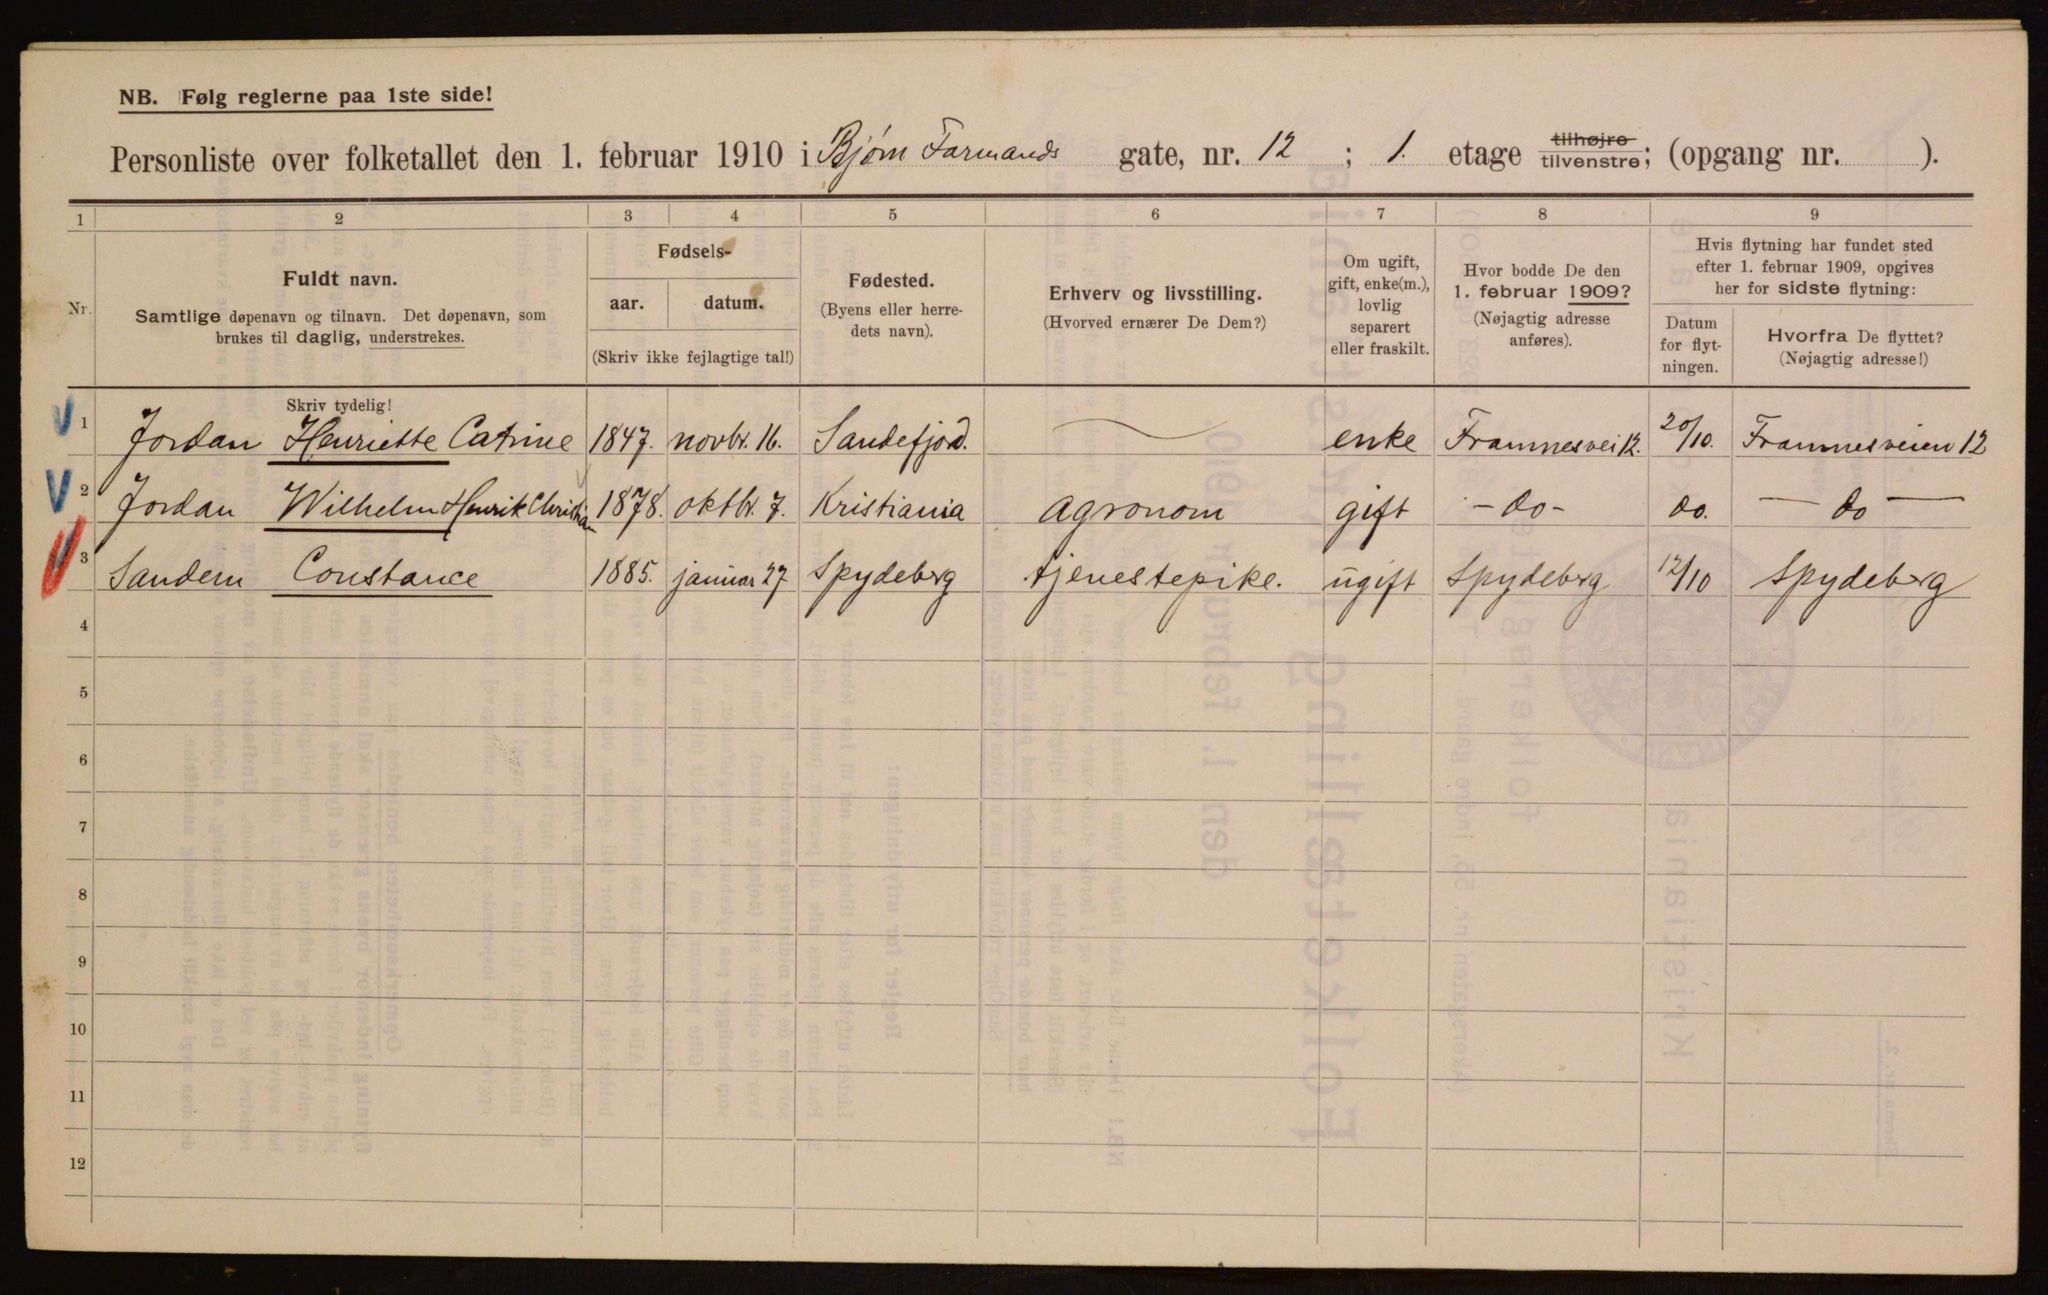 NB. Følg reglerne paa 1ste side!
Personliste over folketallet den 1. februar 1910 i Bjørn Farmands gate, nr. 12 ; 1. etage tilhøjre tilvenstre; (opgang nr. ).
1 2 3 4 5 6 7 8 9
Nr.
Fuldt navn.
Samtlige døpenavn og tilnavn. Det døpenavn, som
brukes til daglig, understrekes.
Fødsels-
aar. datum.
(Skriv ikke fejlagtige tal!)
Fødested.
(Byens eller herre-
dets navn).
Erhverv og livsstilling.
(Hvorved ernærer De Dem?)
Om ugift,
gift, enke(m.),
lovlig
separert
eller fraskilt.
Hvor bodde De den
1. februar 1909?
(Nøjagtig adresse
anføres).
Hvis flytning har fundet sted
efter 1. februar 1909, opgives
her for sidste flytning:
Datum
for flyt-
ningen.
Hvorfra De flyttet?
(Nøjagtig adresse!)
Skriv tydelig!
1 Jordan Henriette Catrine 1847. novbr. 16. Sandefjord. enke Framnesvei 12. 20/10. Framnesveien 12
2 Jordan Wilhelm Henrik Christian 1878. oktbr. 7. Kristiania agronom gift - do - do. - do -
3 Sandem Constance 1885. januar 27 Spydeberg tjenestepike. ugift Spydeberg 12/10 Spydeberg
4
5
6
7
8
9
10
11
12